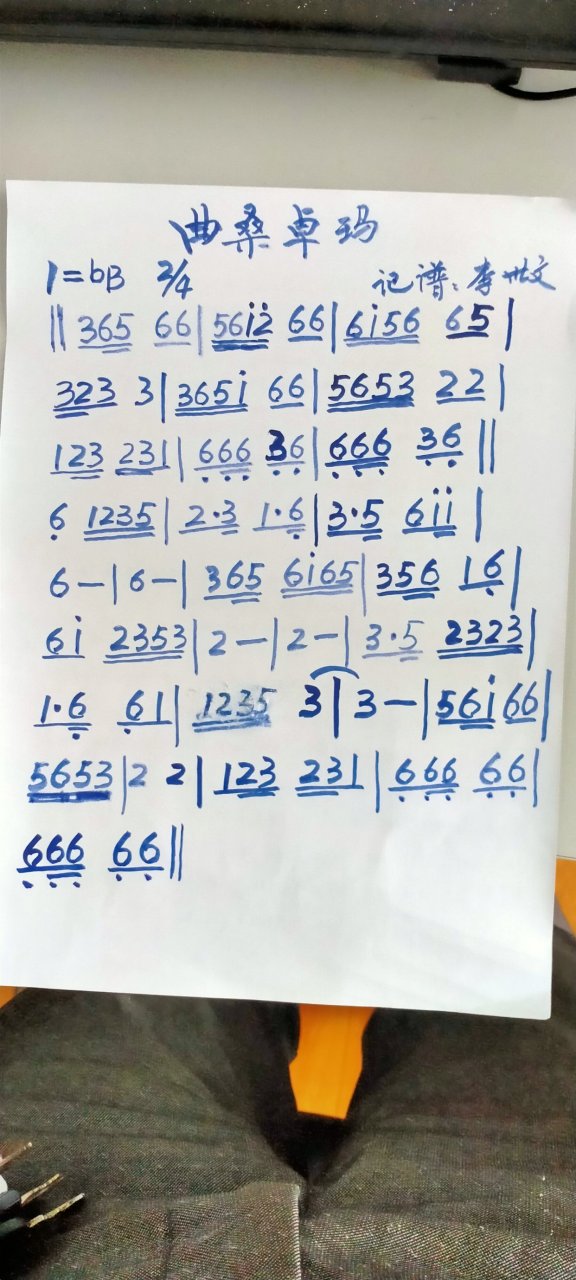 曲桑卓玛
1=bB 2/4 记谱:李世文
‖ 365 66 | 56i̇2̇ 66 | 6i̇56 65 |
323 3 | 365i̇ 66 | 5653 22 |
123 231 | 6̣6̣6̣ 3̣6̣ | 6̣6̣6̣ 3̣6̣ ‖
6̣ 1235 | 2·3 1·6̣ | 3·5 6i̇i̇ |
6— | 6— | 365 6i̇65 | 356 16̣ |
6i̇ 2353 | 2— | 2— | 3·5 2323 |
1·6̣ 6̣1 | 1235 3 | 3— | 56i̇ 66 |
5653 | 2 2 | 123 231 | 6̣6̣6̣ 6̣6̣ |
6̣6̣6̣ 6̣6̣ ‖